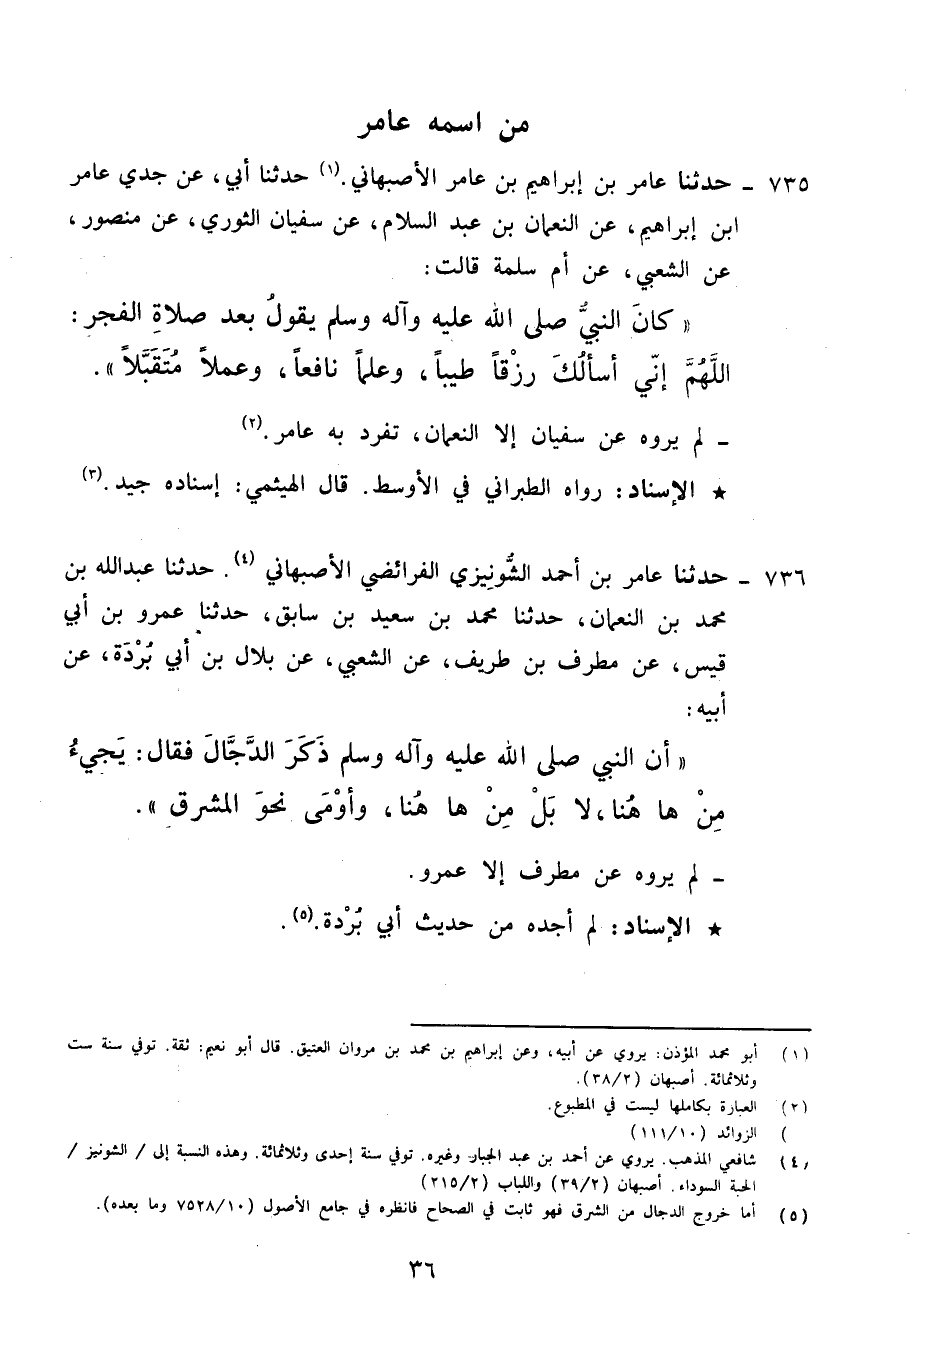 من اسمه عامر
٧٣٥ - حدثنا عامر بن إبراهيم بن عامر الأصبهاني.(١) حدثنا أبي، عن جدي عامر
ابن إبراهيم، عن النعمان بن عبد السلام، عن سفيان الثوري، عن منصور،
عن الشعبي، عن أم سلمة قالت:
« كانَ النبيُّ صلى الله عليه وآله وسلم يقولُ بعد صلاةِ الفجر:
اللَّهُمَّ إنّي أسألُكَ رزْقاً طيباً، وعلماً نافعاً، وعملاً مُتَقَبَّلاً ».
- لم يروه عن سفيان إلا النعمان، تفرد به عامر.(٢)
★ الإسناد: رواه الطبراني في الأوسط. قال الهيثمي: إسناده جيد.(٣)
٧٣٦ - حدثنا عامر بن أحمد الشُّونِيزي الفرائضي الأصبهاني (٤). حدثنا عبدالله بن
محمد بن النعمان، حدثنا محمد بن سعيد بن سابق، حدثنا عمرو بن أبي
قيس، عن مطرف بن طريف، عن الشعبي، عن بلال بن أبي بُرْدَة، عن
أبيه:
« أن النبي صلى الله عليه وآله وسلم ذَكَرَ الدَّجَّالَ فقال: يَجيءُ
مِنْ ها هُنا، لا بَلْ مِنْ ها هُنا، وأوْمَى نحوَ المشرق ».
- لم يروه عن مطرف إلا عمرو.
★ الإسناد: لم أجده من حديث أبي بُرْدة.(٥).
(١) أبو محمد المؤذن: يروي عن أبيه، وعن إبراهيم بن محمد بن مروان العتيق. قال أبو نعيم: ثقة. توفي سنة ست
وثلاثمائة. أصبهان (٣٨/٢).
(٢) العبارة بكاملها ليست في المطبوع.
) الزوائد (١١١/١٠)
(٤) شافعي المذهب. يروي عن أحمد بن عبد الجبار وغيره. توفي سنة إحدى وثلاثمائة. وهذه النسبة إلى / الشونيز /
الحبة السوداء. أصبهان (٣٩/٢) واللباب (٢١٥/٢)
(٥) أما خروج الدجال من الشرق فهو ثابت في الصحاح فانظره في جامع الأصول (٧٥٢٨/١٠ وما بعده).
٣٦